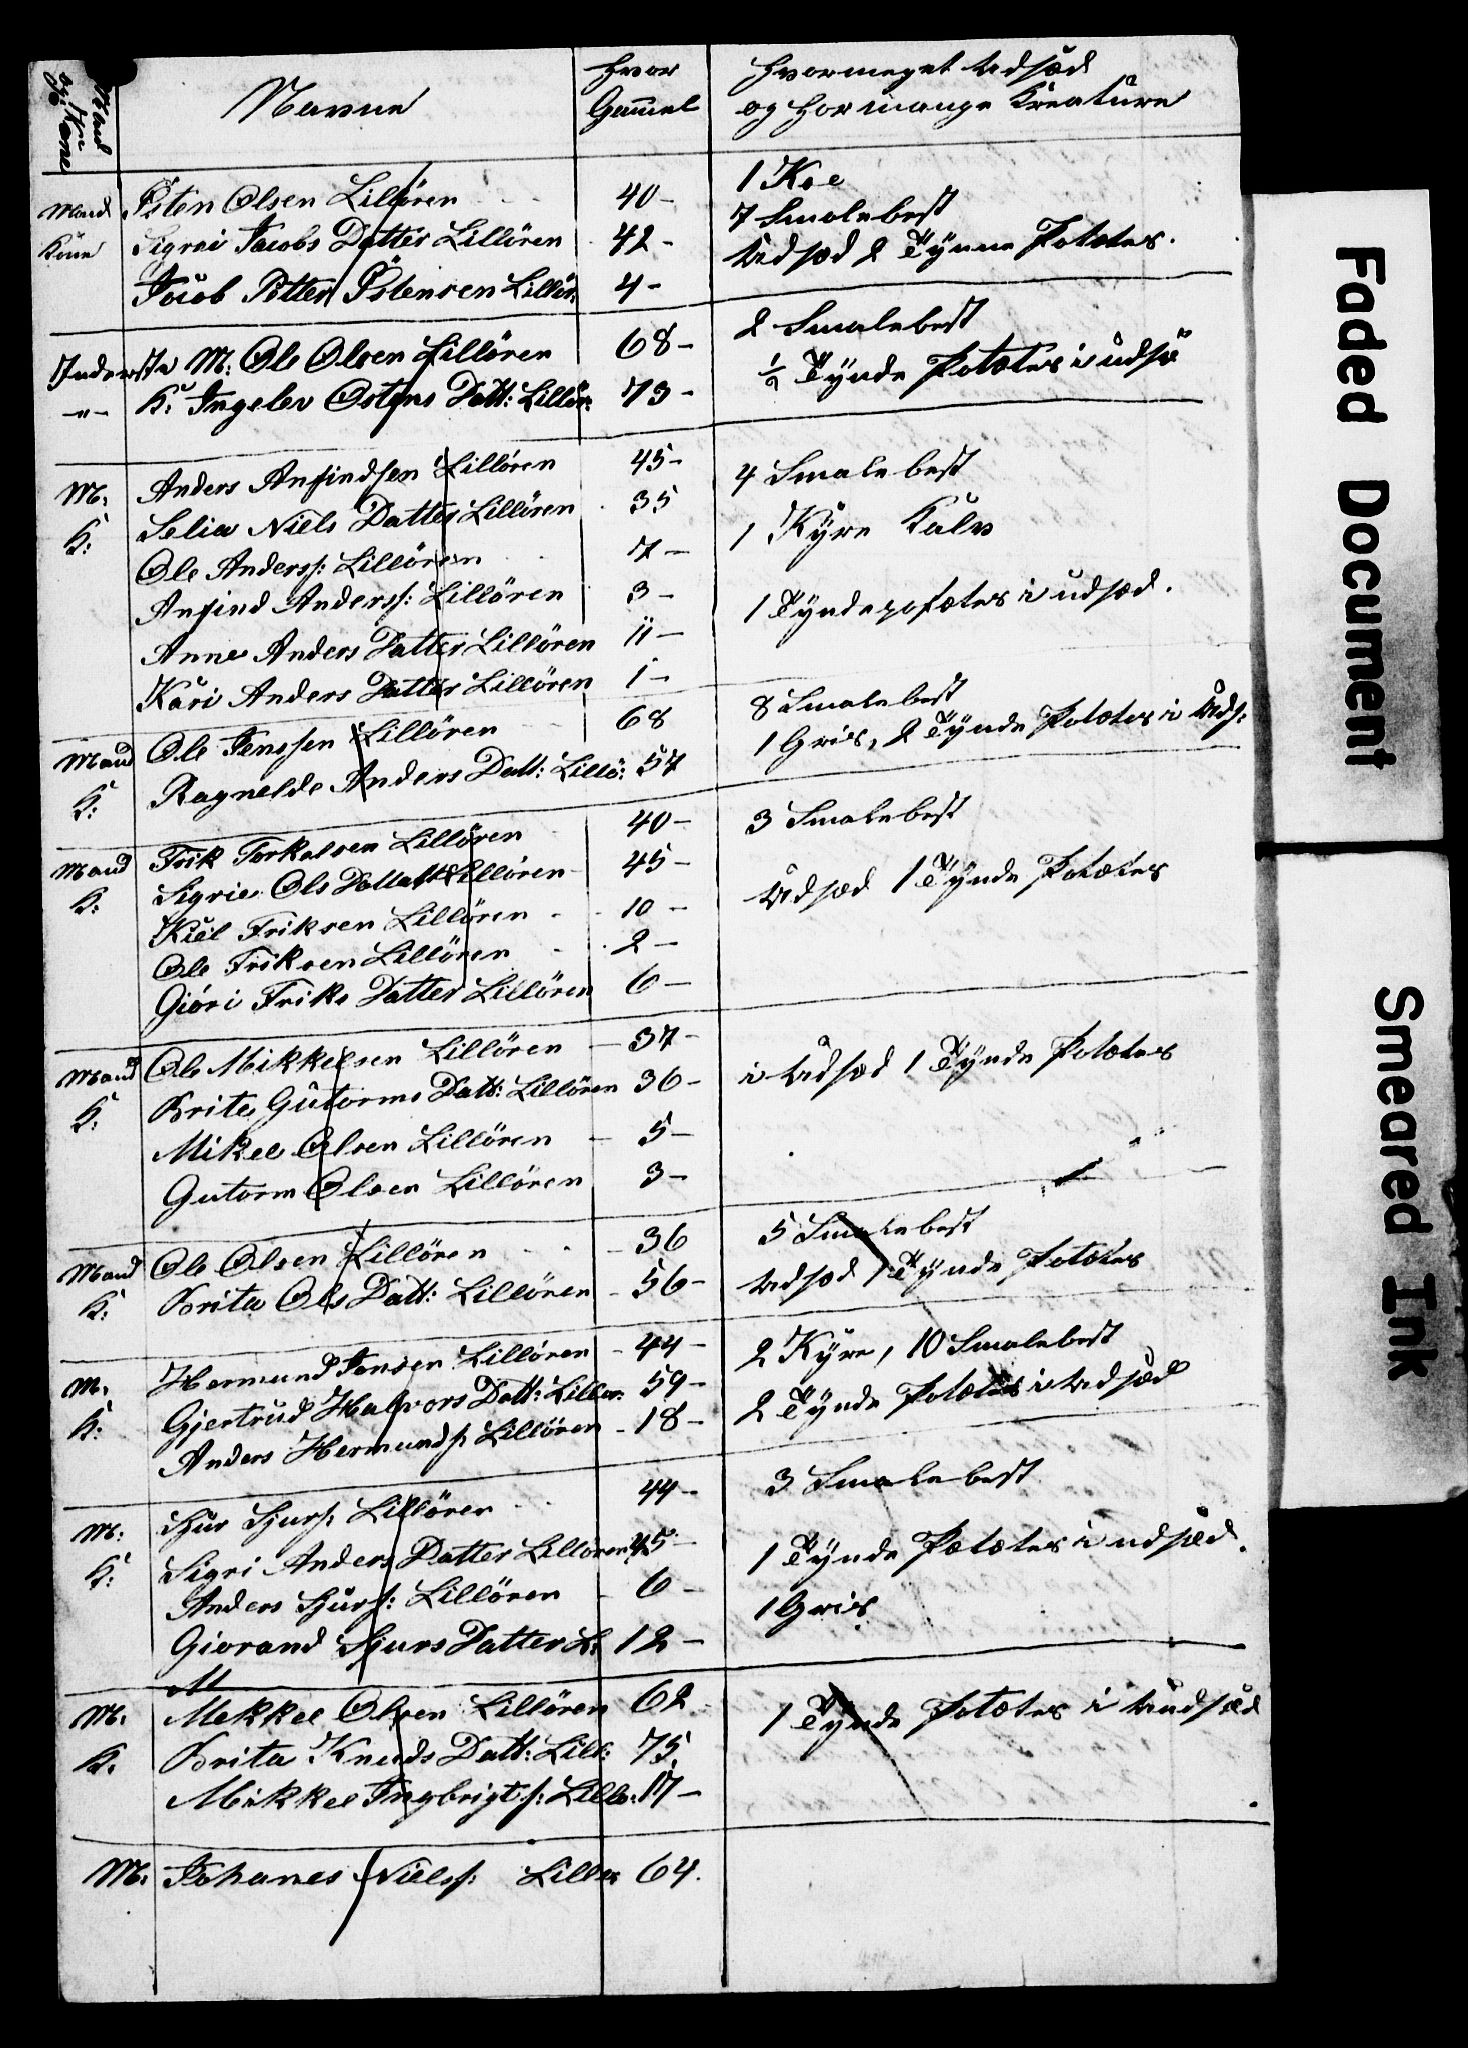 Mand og Kone
Navne
Hvor Gammel
Hvormeget Udsæd
og Hormange Kreature
Mand Östen Olsen Lillören 40- 1 Koe
Kone Sigrei Jacobs Datter Lillören 42- 7 Smalebest
Jacob Petter Östensen Lillör: 4- Udsæd 2 Tynne Potetes.
Inderste M: Ole Olsen Lillören 68- 2 Smalebest
-"- K: Ingelev Ostens Datt: Lillör: 73- ½ Tynde Potetes i udsæ
M: Anders Anfindsen Lillören 45- 4 Smalebest
K: Selia Niels Datter Lillören 35 1 Kyre Kalv
Ole Anderss: Lillören 7-
Anfind Anderss: Lillören 3- 1 Tynde potetes i udsæd.
Anne Anders Datter Lillören 11-
Kari Anders Datter Lillören 1-
Mand Ole Jenssen Lillören 68 8 Smalebest
K: Ragnelde Anders Datt: Lillö: 57 1 Gris, 2 Tynde Potetes i Uds:
Mand Erik Torkelsen Lillören 40- 3 Smalebest
K: Sigrie Ols Dattatt Lillören 45- Udsæd 1 Tynde Potetes
Kiel Eriksen Lillören 10-
Ole Eriksen Lillören 2-
Gióri Eriks Datter Lillören 6-
Mand Ole Mikkelsen Lillören 37- i Udsæd 1 Tynde Potetes
K: Brite Gutorms Datt: Lillören 36-
Mikel Olsen Lillören 5-
Gutorm Olsen Lillören 3-
Mand Ole Olsen Lillören 36 5 Smalebest
K: Brita Ols Datt: Lillören 56- Udsæd 1 Tynde Potetes
M. Hermund Jensen Lillören 44- 2 Kyre, 10 Smalebest
K: Gjertrud Halvors Datt: Lillör: 59- 2 Tynde Potetes i Udsæd
Anders Hermunds: Lillören 18-
M: Sjur Sjurs: Lillören 44- 3 Smalebest
K: Sigri Anders Datter Lillören 45- 1 Tynde Potetes i udsæd.
Anders Sjurs: Lillören 6- 1 Gris
Giorand Sjurs Datter L: 12-
M
M. Mekkel Olsen Lillören 62 1 Tynde Potetes i Uudsæd
K. Brita Knuds Datt: Lill: 75
Mikkel Ingbrigts: Lillö: 17-
M: Johanes Nielss: Lillör 64.
Faded Document
Smeared Ink